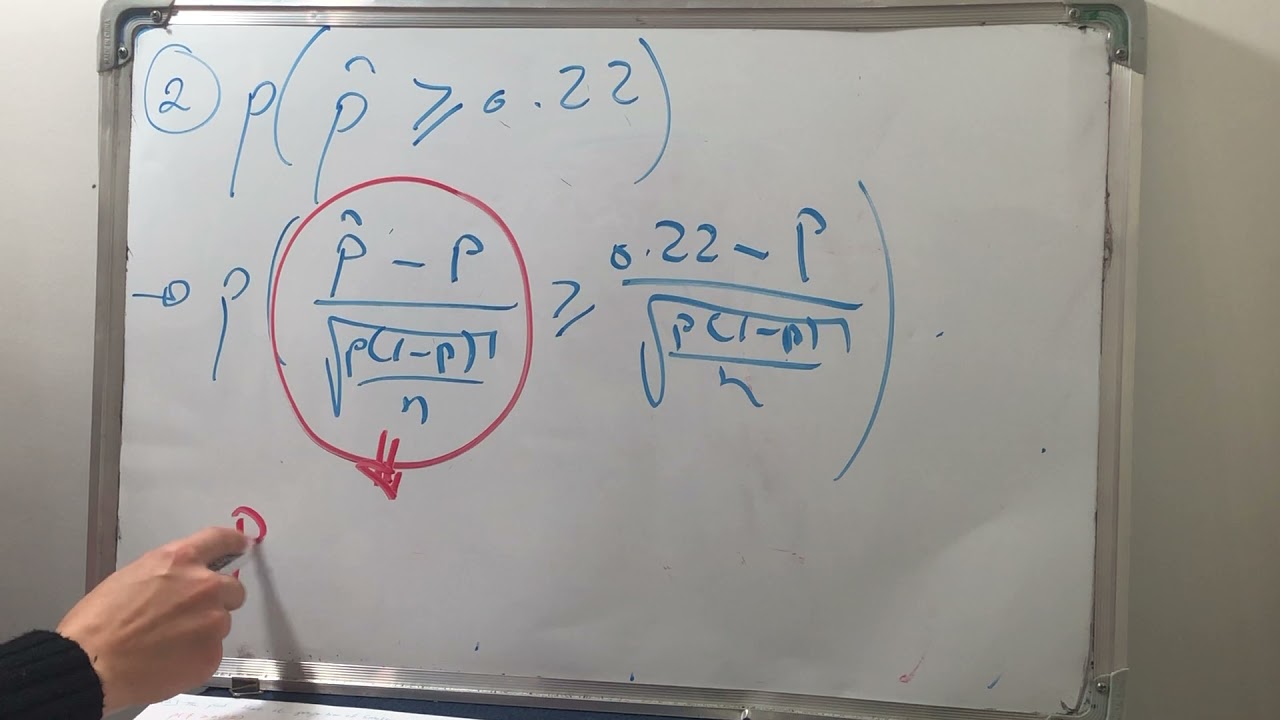 ② p(p̂ ≥ 0.22)
→ p( (p̂ - p) / √(p(1-p)/n) ≥ (0.22 - p) / √(p(1-p)/n) )
p